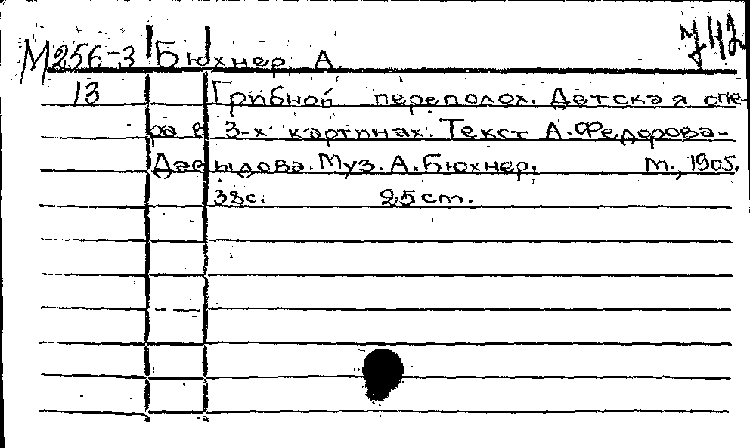 М256-3 Бюхнер, А.
13 Грибной переполох. Детская опе-
ра в 3-х картинах. Текст А. Федорова-
Давыдова. Муз. А. Бюхнер. м., 1905.
38с. 25см.